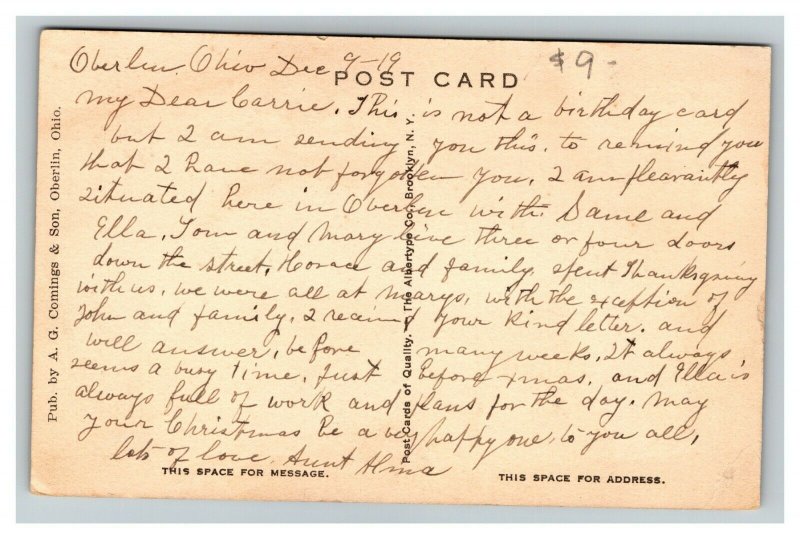 Oberlin, Ohio Dec 9-19
$9-
POST CARD
My Dear Carrie. This is not a birthday card
but I am sending you this. to remind you
that I have not forgotten you, I am pleasantly
situated here in Oberlin with. Same and
Ella, Tom and Mary live three or four doors
down the street, Horace and family, spent Thanksgiving
with us, we were all at Marys, with the exception of
John and family, I received your kind letter. and
will answer, before many weeks, It always
seems a busy time, just before xmas, and Ella is
always full of work and plans for the day. May
your Christmas be a very happy one, to you all,
lots of love. Aunt Alma
THIS SPACE FOR MESSAGE.
THIS SPACE FOR ADDRESS.
Pub. by A. G. Comings & Son, Oberlin, Ohio.
Post Cards of Quality. The Albertype Co., Brooklyn, N. Y.